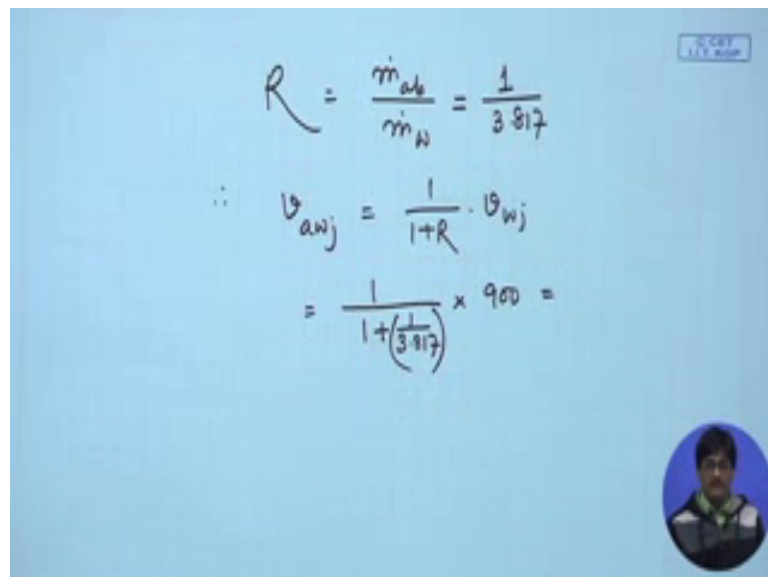 C CET
I.I.T. KGP
R = ṁ_ab / ṁ_w = 1 / 3.817
∴ v_awj = 1 / (1+R) · v_wj
= 1 / (1+(1/3.817)) × 900 =